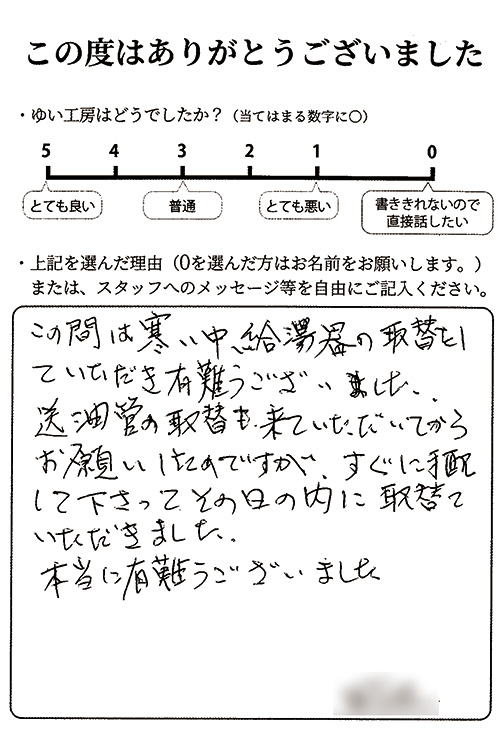 この度はありがとうございました
・ゆい工房はどうでしたか？（当てはまる数字に〇）
5 4 3 2 1 0
とても良い 普通 とても悪い 書ききれないので
直接話したい
・上記を選んだ理由（0を選んだ方はお名前をお願いします。）
または、スタッフへのメッセージ等を自由にご記入ください。
この間は寒い中、給湯器の取替をし
ていただき有難うございました。
送油管の取替も来ていただいてから
お願いしたのですが、すぐに手配
して下さってその日の内に取替て
いただきました。
本当に有難うございました